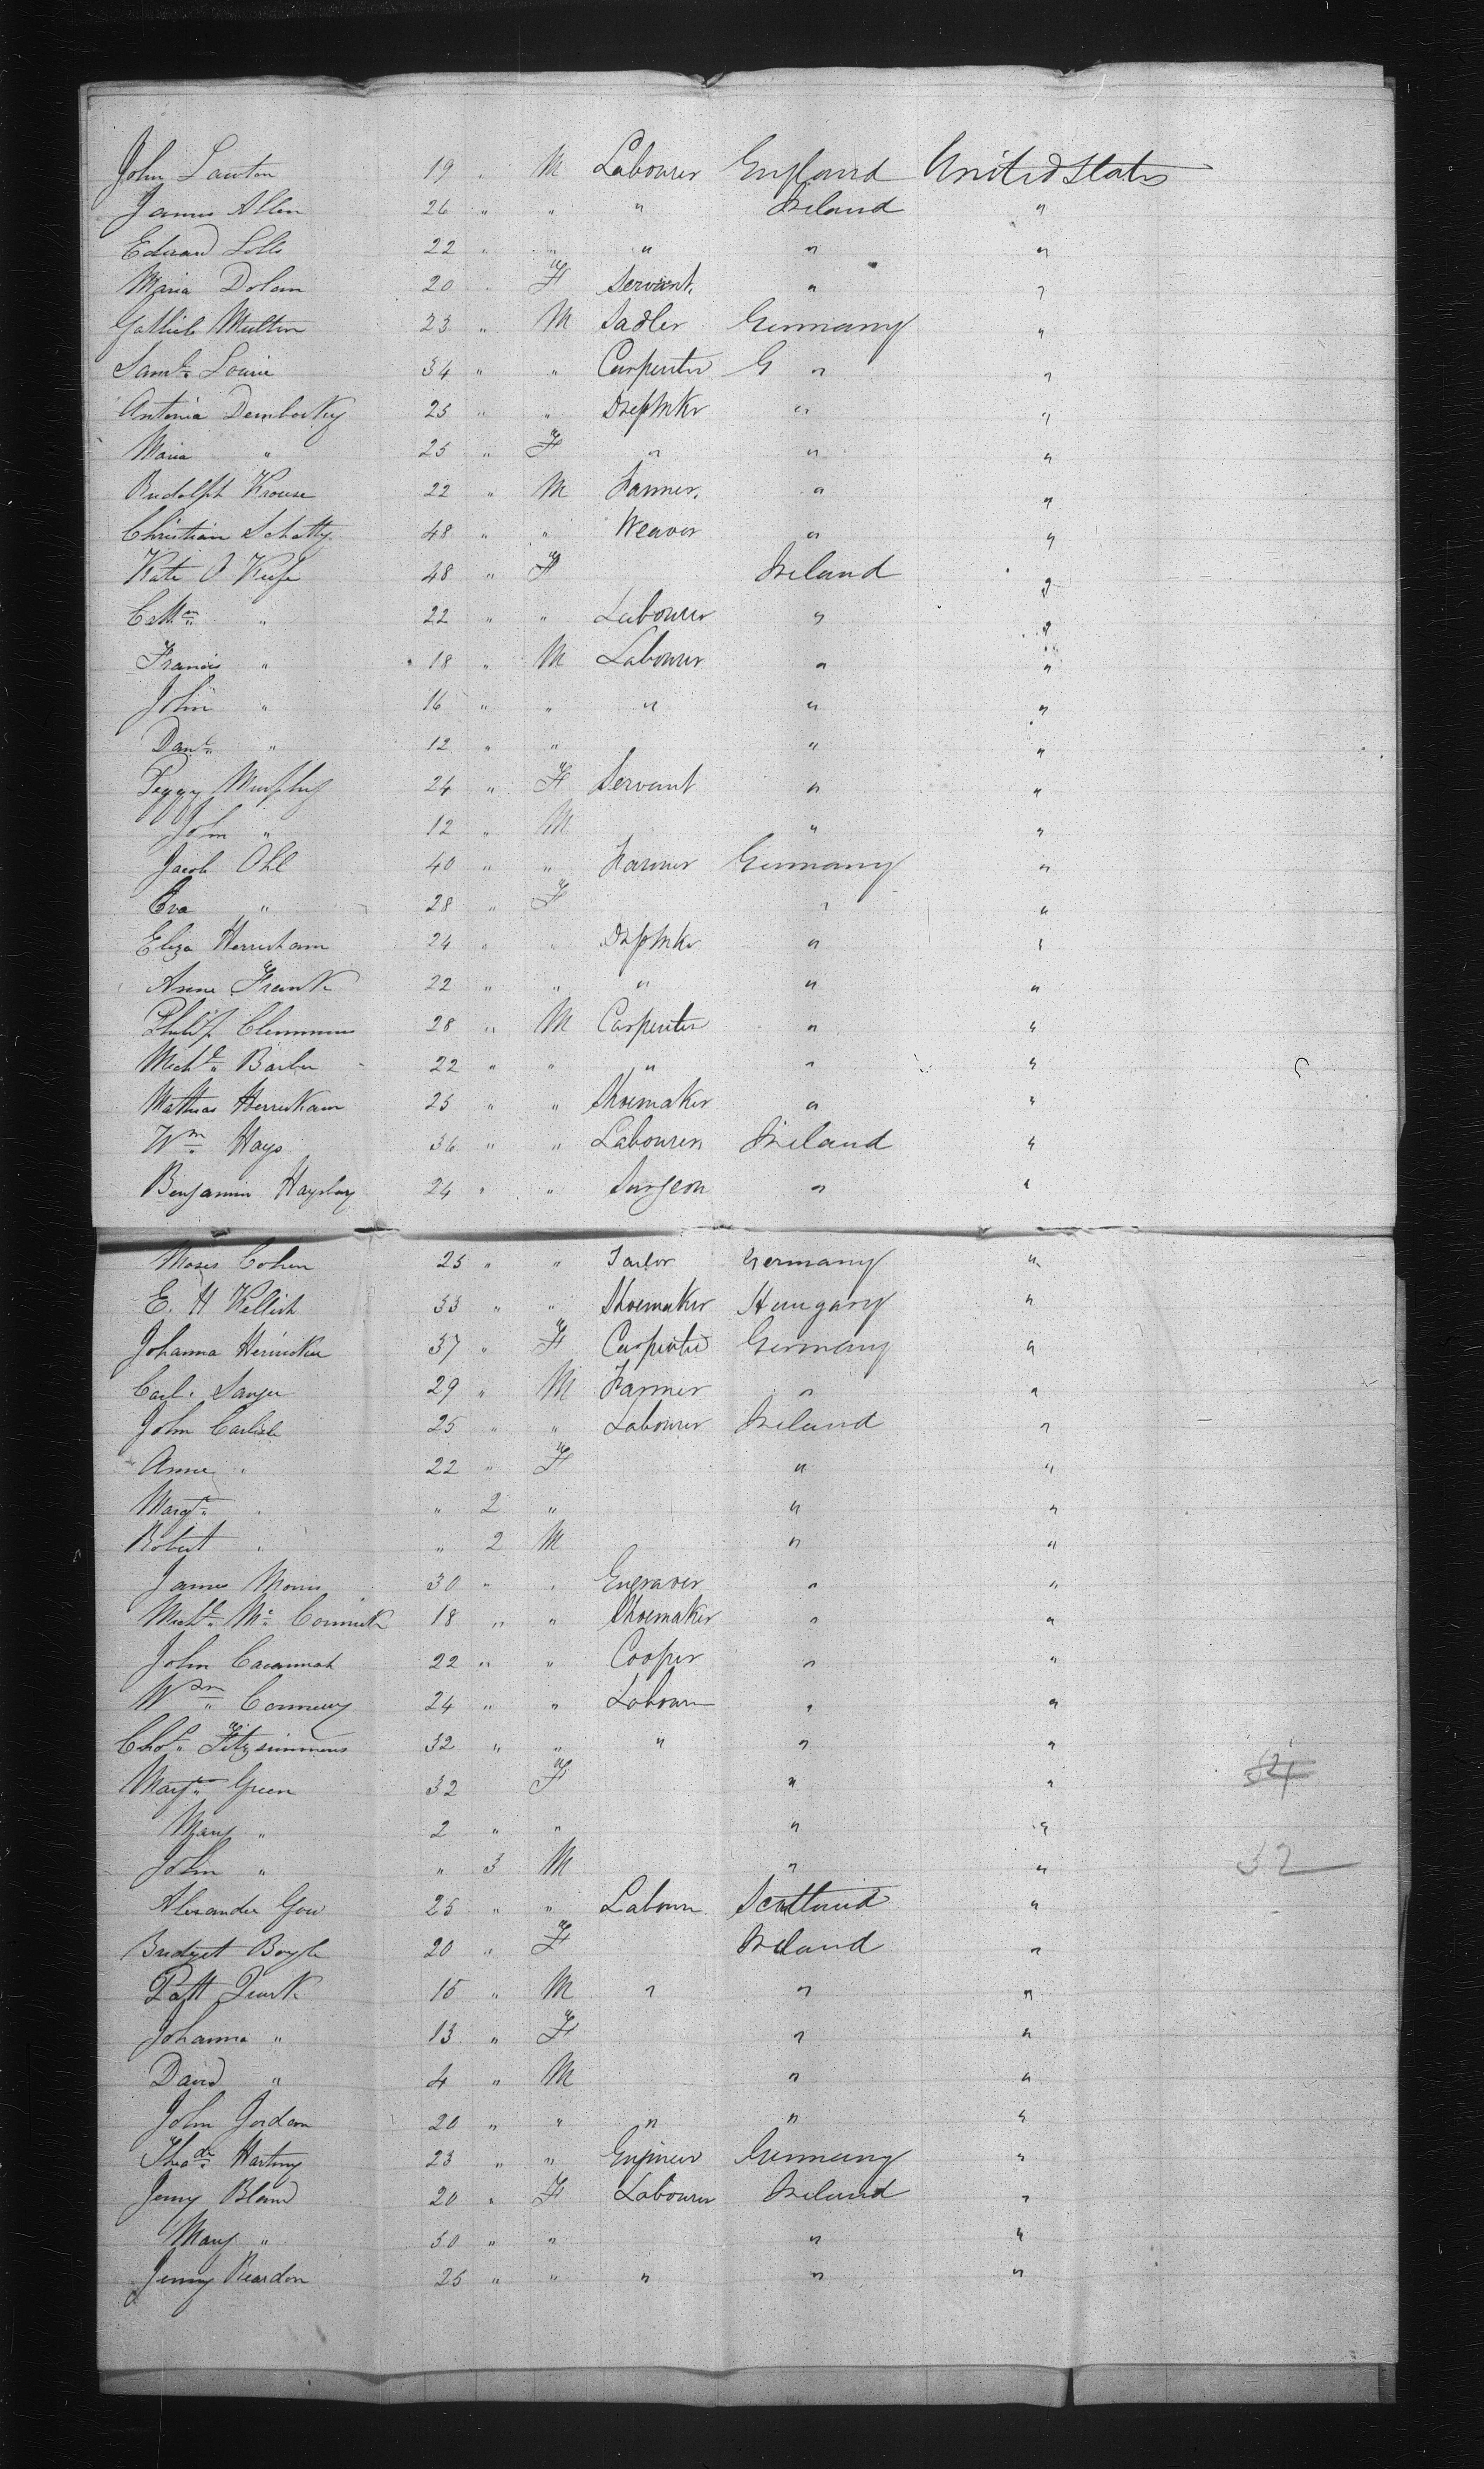 John Lawton 19 " M Labourer England United States
James Allen 26 " " " Ireland "
Edward 22 " " " " "
Maria Dolan 20 " F Servant " "
Gottlieb 23 " M Sadler Germany "
Saml. Louie 34 " " Carpenter G " "
Antonia Demborky 25 " " " "
Maria " 25 " F " " "
Rudolph Krouse 22 " M Farmer. " "
Christian Schatty 48 " " Weaver " "
Kate O Keefe 48 " F Ireland "
" 22 " " Labourer " "
Francis " 18 " M Labourer " "
John " 16 " " " " "
Danl. " 12 " " " "
Peggy Murphy 24 " F Servant " "
John " 12 " M " "
Jacob Ohl 40 " " Farmer Germany "
Eva " 28 " F " "
Eliza 24 " " " "
Anne Frank 22 " " " " "
Philip Clemmens 28 " M Carpenter " "
Michl. Barber 22 " " " " "
Mathias 25 " " Shoemaker " "
Wm. Hays 36 " " Labourer Ireland "
Benjamin 24 " " Surgeon " "
Moses Cohen 25 " " Tailor Germany "
E. H 33 " " Shoemaker Hungary "
Johanna 37 " F Carpenter Germany "
Carl. Sanger 29 " M Farmer " "
John Carlisle 25 " " Labourer Ireland "
Anne " 22 " F " "
Margt. " " 2 " " "
Robert " " 2 M " "
James Morris 30 " " Engraver " "
Michl. Mc. Cormick 18 " " Shoemaker " "
John Cavannah 22 " " Cooper " "
Wm. 24 " " Labourer " "
Fitzsimmons 32 " " " " "
Margt. Green 32 F " "
Mary " 2 " " " "
John " " 3 M " " 32
Alexander Gow 25 " " Labourer Scotland "
Bridget Boyle 20 " F Ireland "
Patt 15 " M " " "
Johanna " 13 " F " "
David " 4 " M " "
John Jordan 20 " " " " "
Theodr. Hartung 23 " " Engineer Germany "
Jenny Bland 20 " F Labourer Ireland "
Mary " 50 " " " "
Jenny Reardon 25 " " " " "